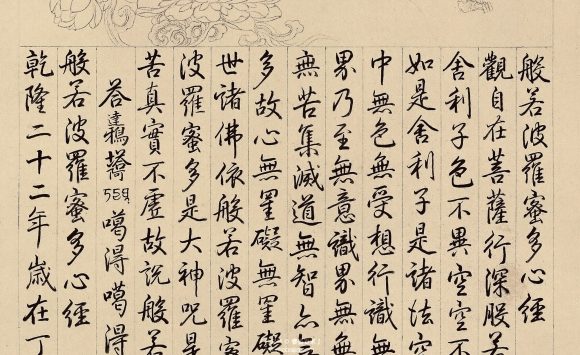 般若波羅蜜多心經
觀自在菩薩行深般若
舍利子色不異空空不
如是舍利子是諸法空
中無色無受想行識無
界乃至無意識界無無
無苦集滅道無智亦無
多故心無罣礙無罣礙
世諸佛依般若波羅蜜
波羅蜜多是大神咒是
苦真實不虛故說般若
荅噶得噶得
般若波羅蜜多心經
乾隆二十二年歲在丁